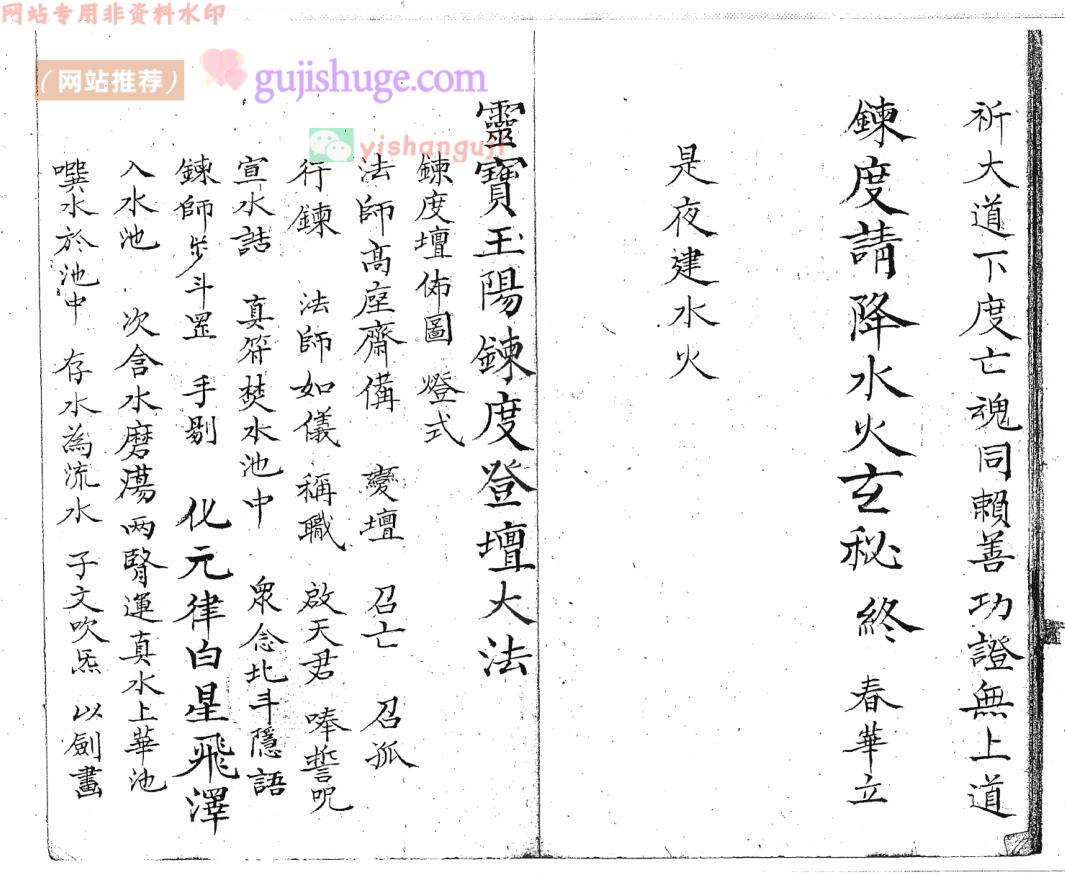 网站专用非资料水印
(网站推荐)
gujishuge.com
yishanguji
祈大道下度亡魂同賴善功證無上道
鍊度請降水火玄秘終 春華立
是夜建水火
靈寶玉陽鍊度登壇大法
鍊度壇佈圖 燈式
法師高座齋備 變壇 召亡 召孤
行鍊 法師如儀 稱職 啟天君 唪誓呪
宣水誥 真符焚水池中 眾念北斗隱語
鍊師步斗罡 手剔 化元律白星飛澤
入水池 次含水磨蕩兩腎運真水上華池
噀水於池中 存水為流水 子文吹炁 以劍畫